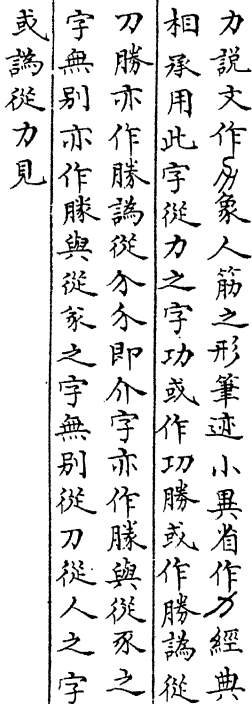 力說文作𠠲象人筋之形筆迹小異省作力經典
相承用此字從力之字功或作㓛勝或作勝譌從
刀勝亦作勝譌從分分即介字亦作勝與從豕之
字無别亦作勝與從豕之字無别從刀從人之字
或譌從力見